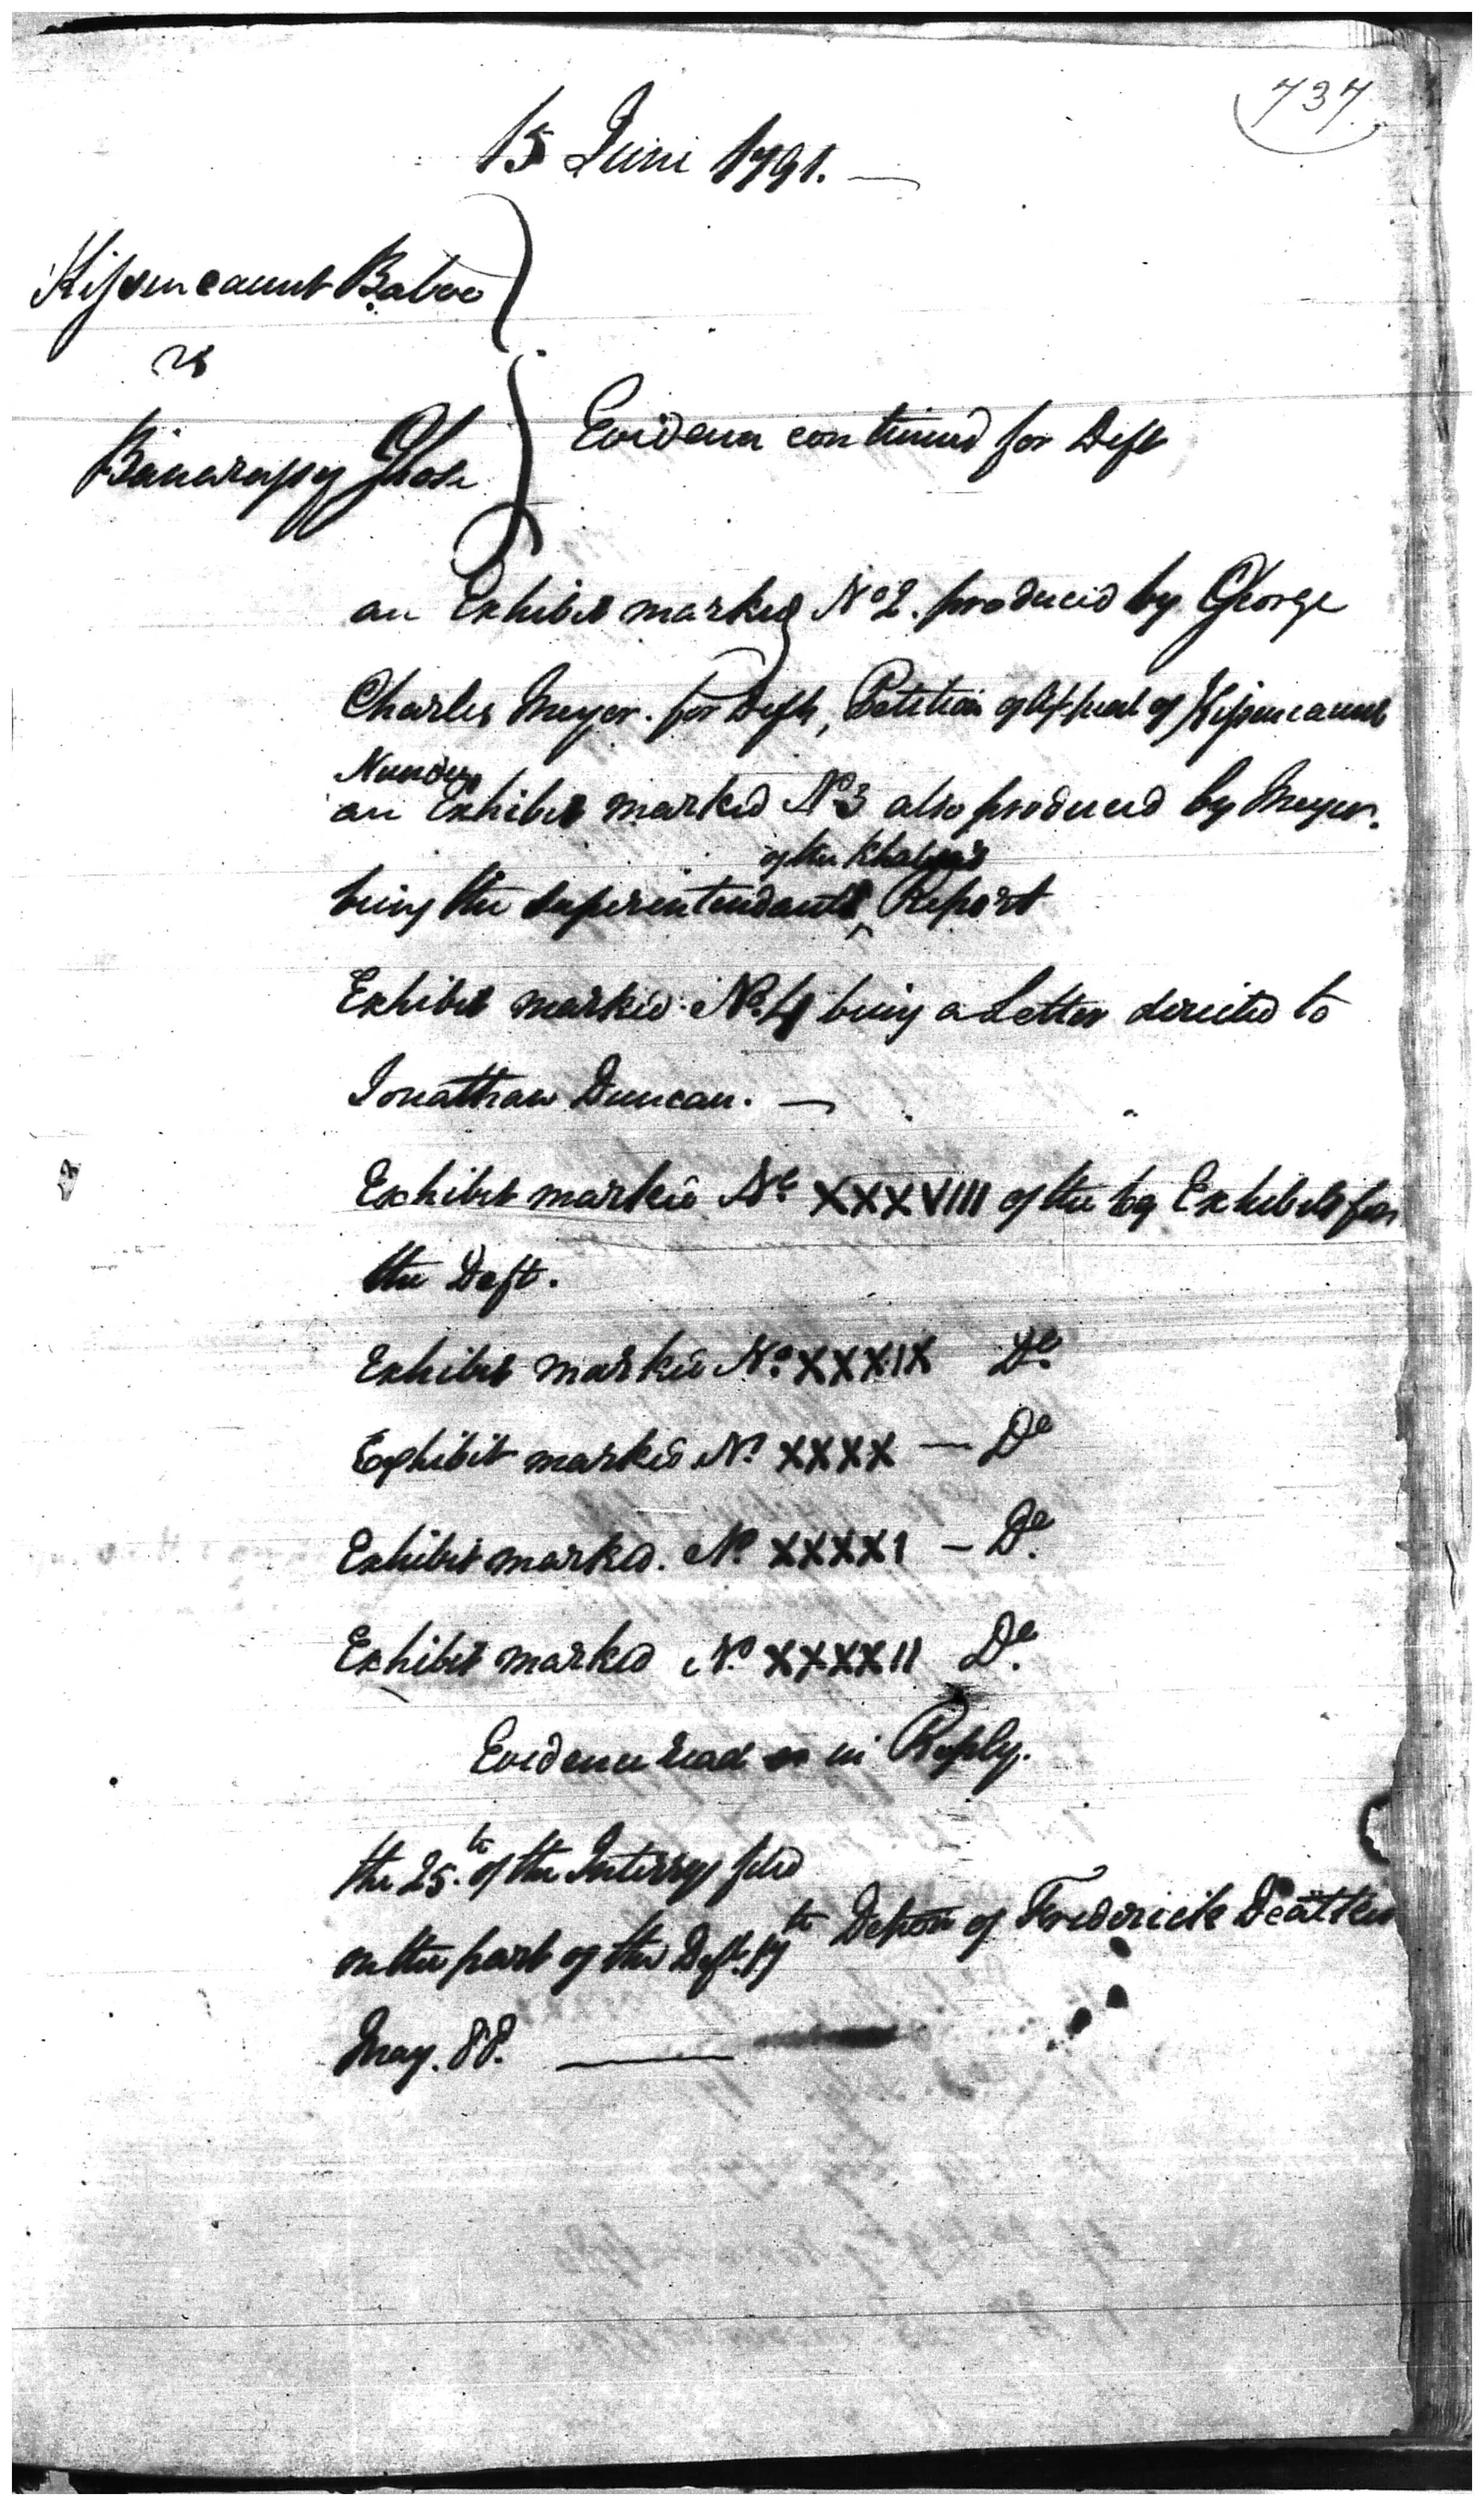 737
15 Juni 1791. —
Kissencaunt Baboo
vs
Ghose
Evidence continued for Deft
an Exhibit marked No 2. produced by George
Charles Meyer. for Deft, Petition of Appeal of Kissencaunt
Nundy
an Exhibit marked No 3 also produced by Meyer.
of the Khalsa's
being the Superintendants ^ Report
Exhibit marked No. 4 being a Letter directed to
Jonathan Duncan. —
Exhibit marked No. XXXVIII of the Exhibits for
the Deft.
Exhibit marked No. XXXIX Do.
Exhibit marked No. XXXX — Do
Exhibit marked. No. XXXXI — Do.
Exhibit marked No. XXXXII Do.
Evidence read in Reply.
the 25.th of the Interrogs filed
on the part of the Deft. 17th of Frederick
May. 88. —